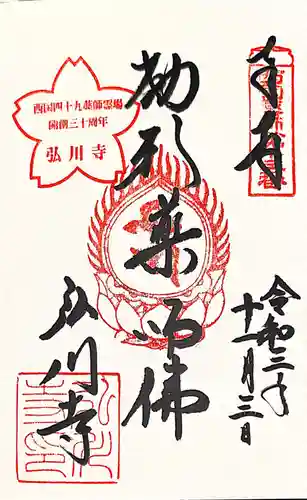 奉拝
令和三年
十一月三日
勅形薬師佛
弘川寺
西国四十九薬師霊場
開創三十周年
弘川寺